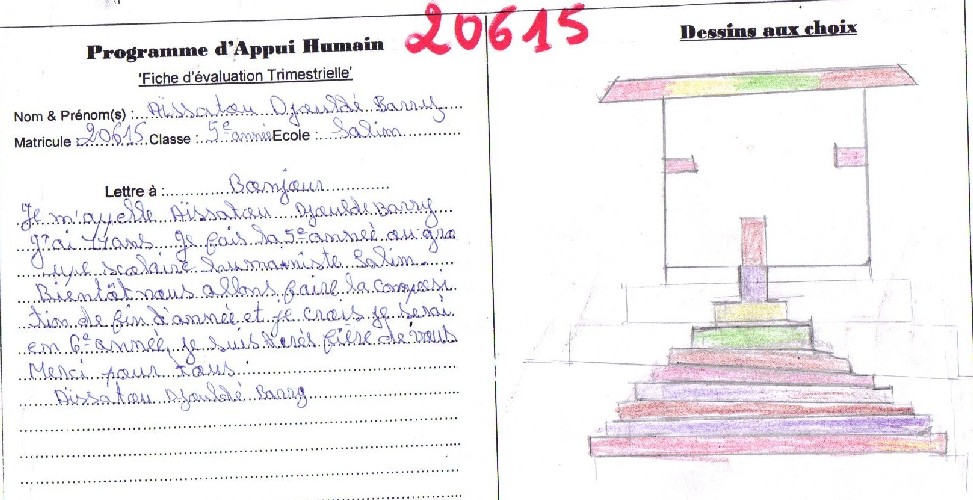 20615
Programme d'Appui Humain
'Fiche d'évaluation Trimestrielle'
Nom & Prénom(s) : Aissatou Djouldé Barry
Matricule : 20615 Classe : 5e année Ecole : Salim
Lettre à : Bonjour
Je m'appelle Aissatou Djouldé Barry
J'ai 11 ans Je fais la 5e année au gro
upe scolaire humaniste Salim
Bientôt nous allons faire la composi
tion de fin d'année et je crois je serai
en 6e année, je suis très fière de vous
Merci pour tous
Aissatou Djouldé Barry
Dessins aux choix